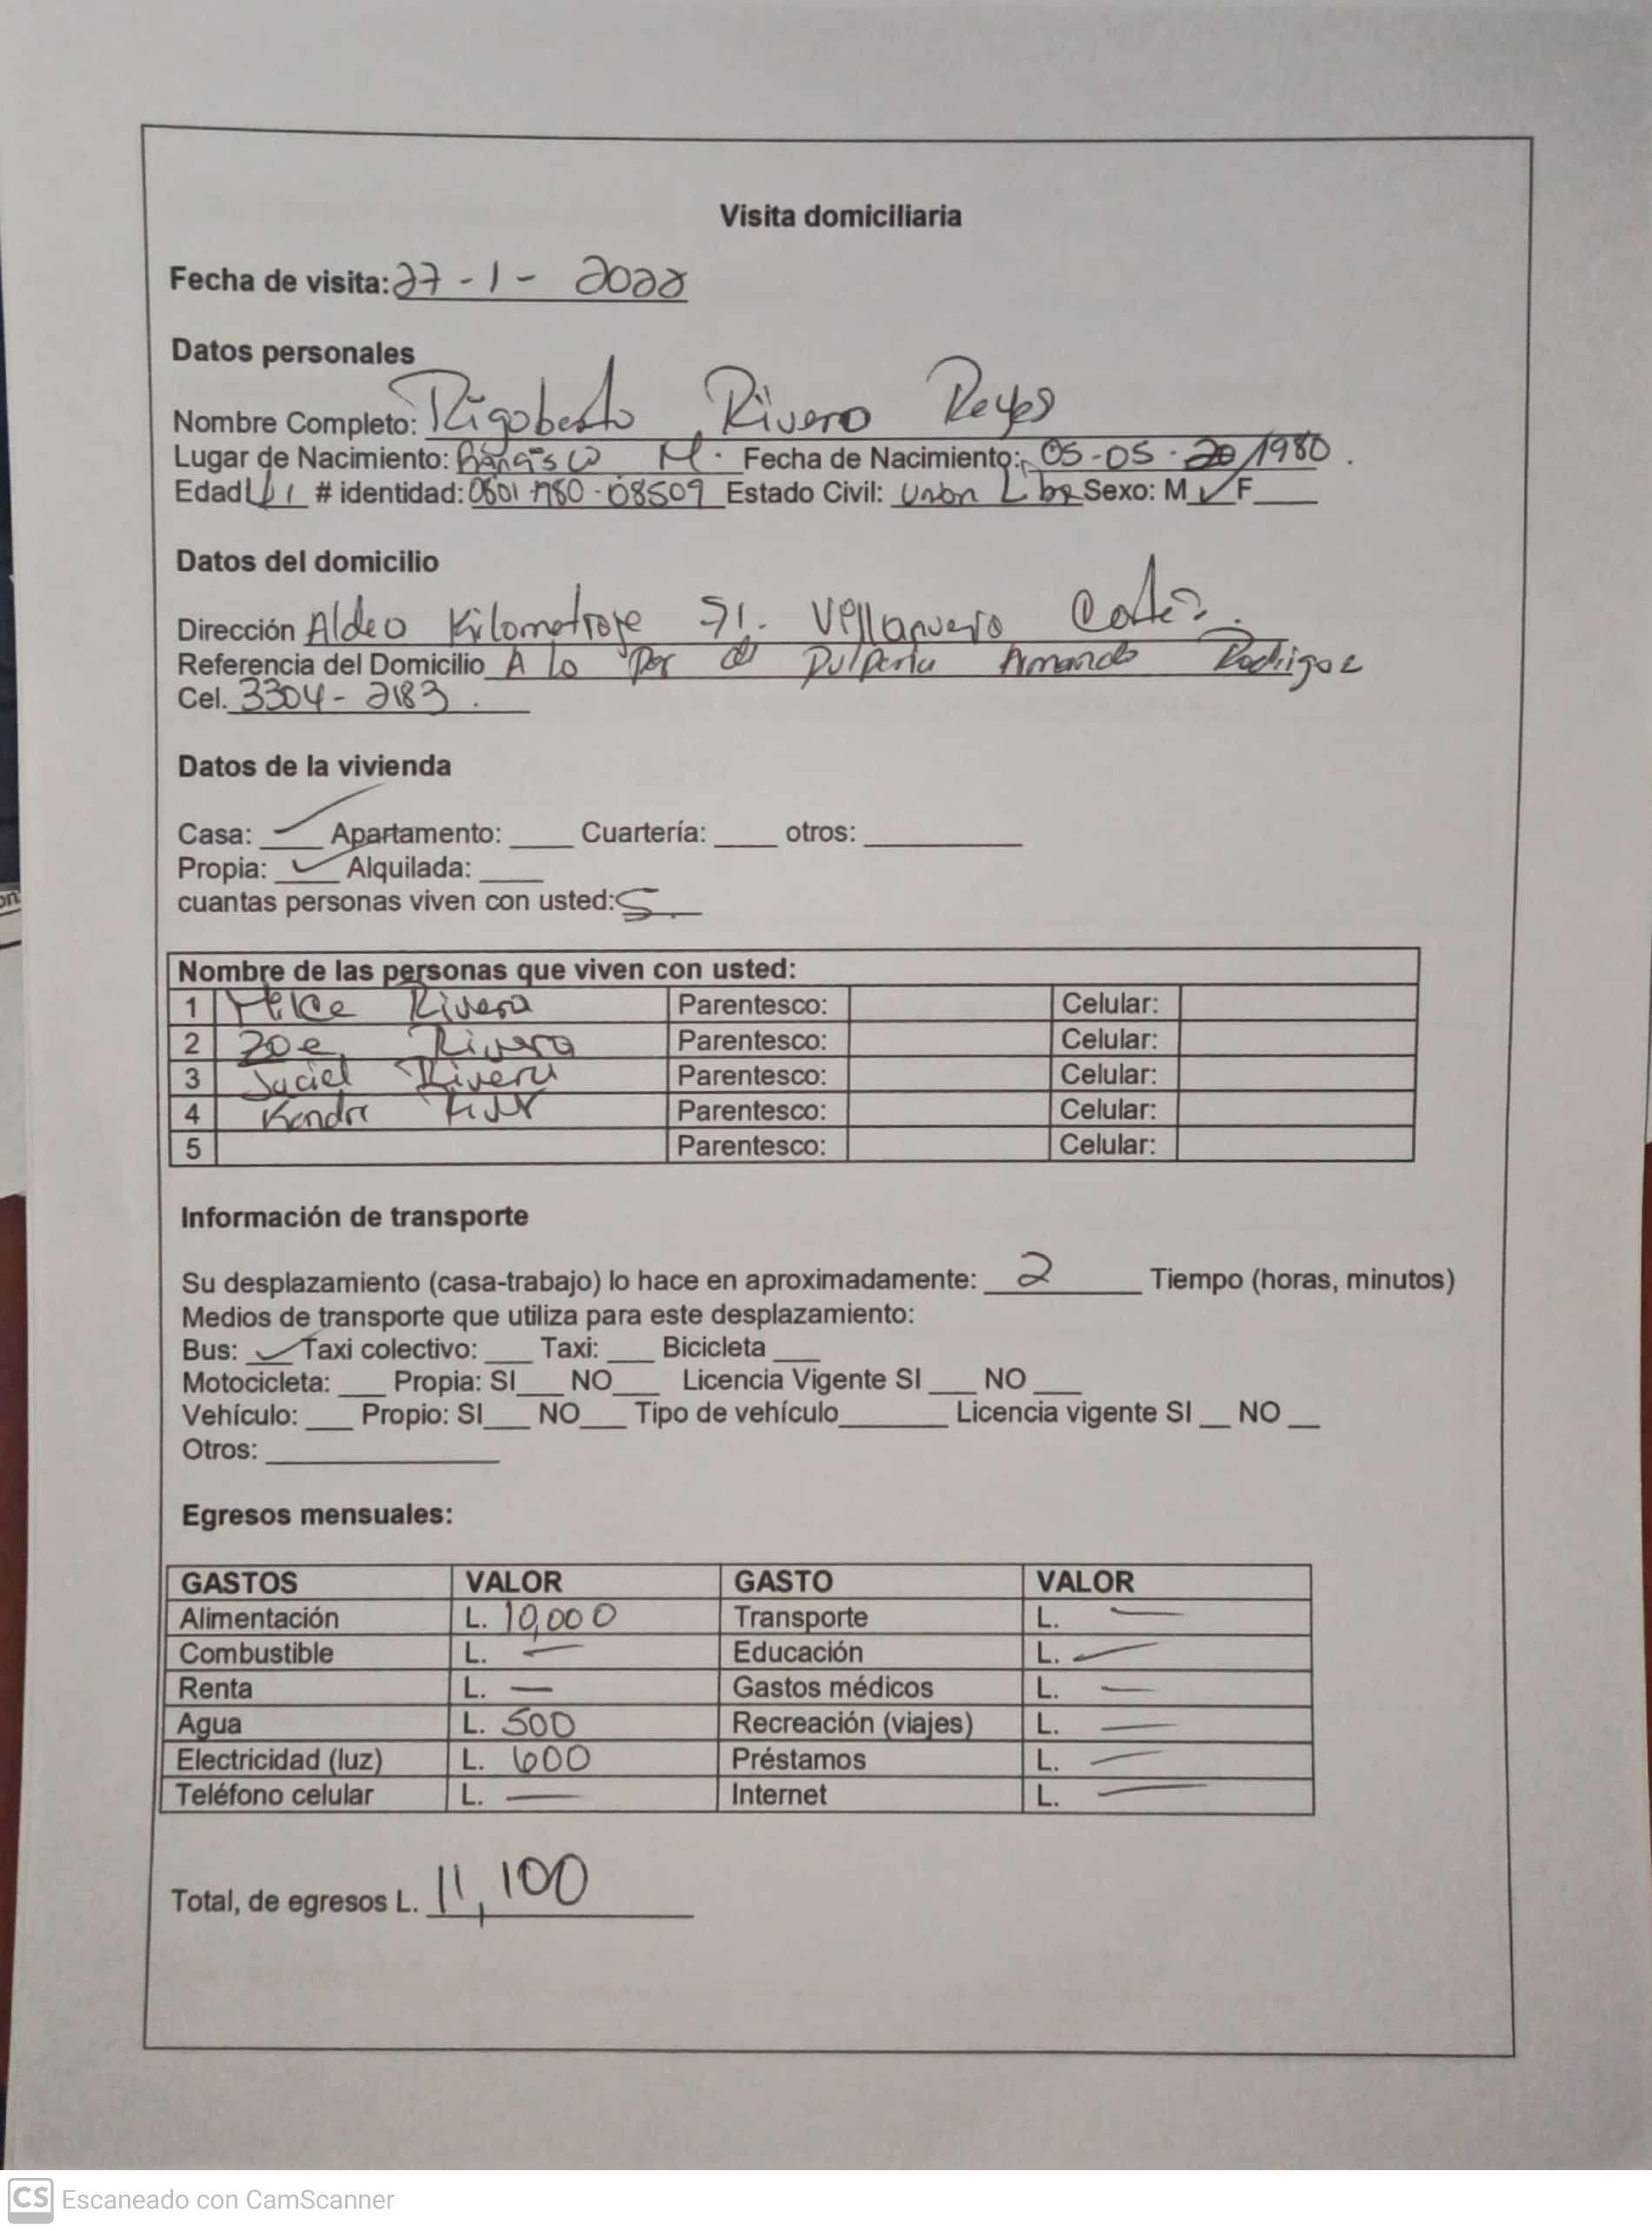 Visita domiciliaria
Fecha de visita: 27-1-2022
Datos personales
Nombre Completo: Rigoberto Rivera Reyes
Lugar de Nacimiento: M. Fecha de Nacimiento: 05-05-1980.
Edad 41 # identidad: 0801-1980-08509 Estado Civil: Union Libre Sexo: M ✓ F
Datos del domicilio
Dirección Aldea Kilometraje 51. Villanueva Cortés.
Referencia del Domicilio A lo Par de Pulperia Armando Rodrigoz
Cel. 3304-2183.
Datos de la vivienda
Casa: ✓ Apartamento: ____ Cuartería: ____ otros: ____
Propia: ✓ Alquilada: ____
cuantas personas viven con usted: 5
Nombre de las personas que viven con usted:
1 Rivera Parentesco: Celular:
2 Zoe Rivera Parentesco: Celular:
3 Jaciel Rivera Parentesco: Celular:
4 Kendra Parentesco: Celular:
5 Parentesco: Celular:
Información de transporte
Su desplazamiento (casa-trabajo) lo hace en aproximadamente: 2 Tiempo (horas, minutos)
Medios de transporte que utiliza para este desplazamiento:
Bus: ✓ Taxi colectivo: ___ Taxi: ___ Bicicleta ___
Motocicleta: ___ Propia: SI___ NO___ Licencia Vigente SI ___ NO ___
Vehículo: ___ Propio: SI___ NO___ Tipo de vehículo_______ Licencia vigente SI __ NO __
Otros: ____
Egresos mensuales:
GASTOS VALOR GASTO VALOR
Alimentación L. 10,000 Transporte L. —
Combustible L. — Educación L. —
Renta L. — Gastos médicos L. —
Agua L. 500 Recreación (viajes) L. —
Electricidad (luz) L. 600 Préstamos L. —
Teléfono celular L. — Internet L. —
Total, de egresos L. 11,100
CS Escaneado con CamScanner